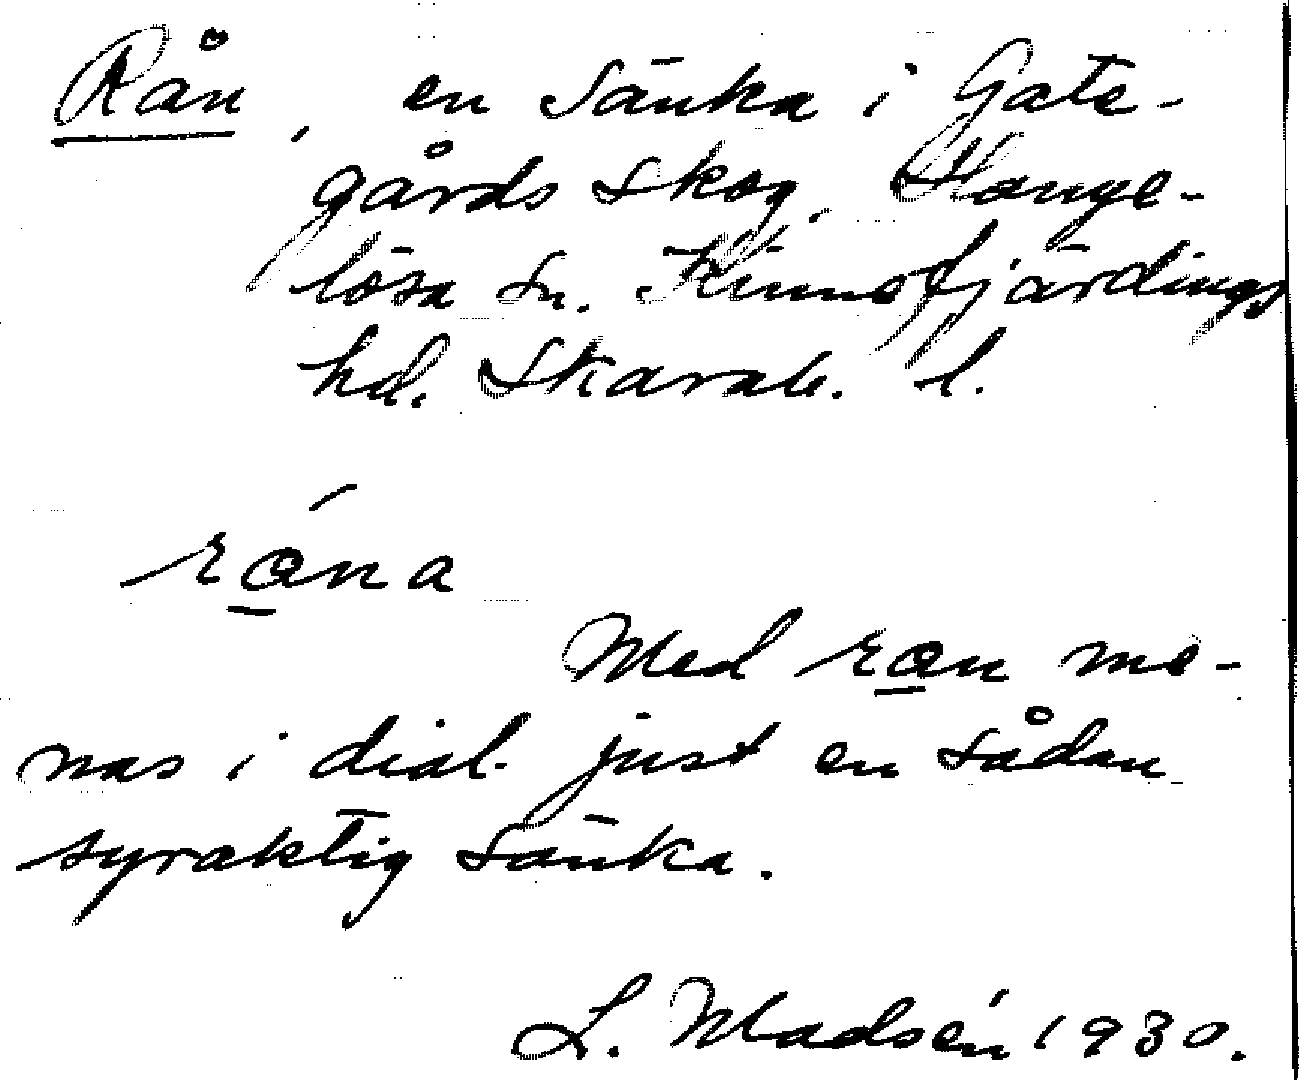 Rån, en sänka i Gate-
gårds skog, Hange-
lösa sn. Kinnefjärdings
hd. Skarab. l.
rǫ́na
Med rǫn me-
nas i dial. just en sådan
syraktig sänka.
L. Madsén 1930.